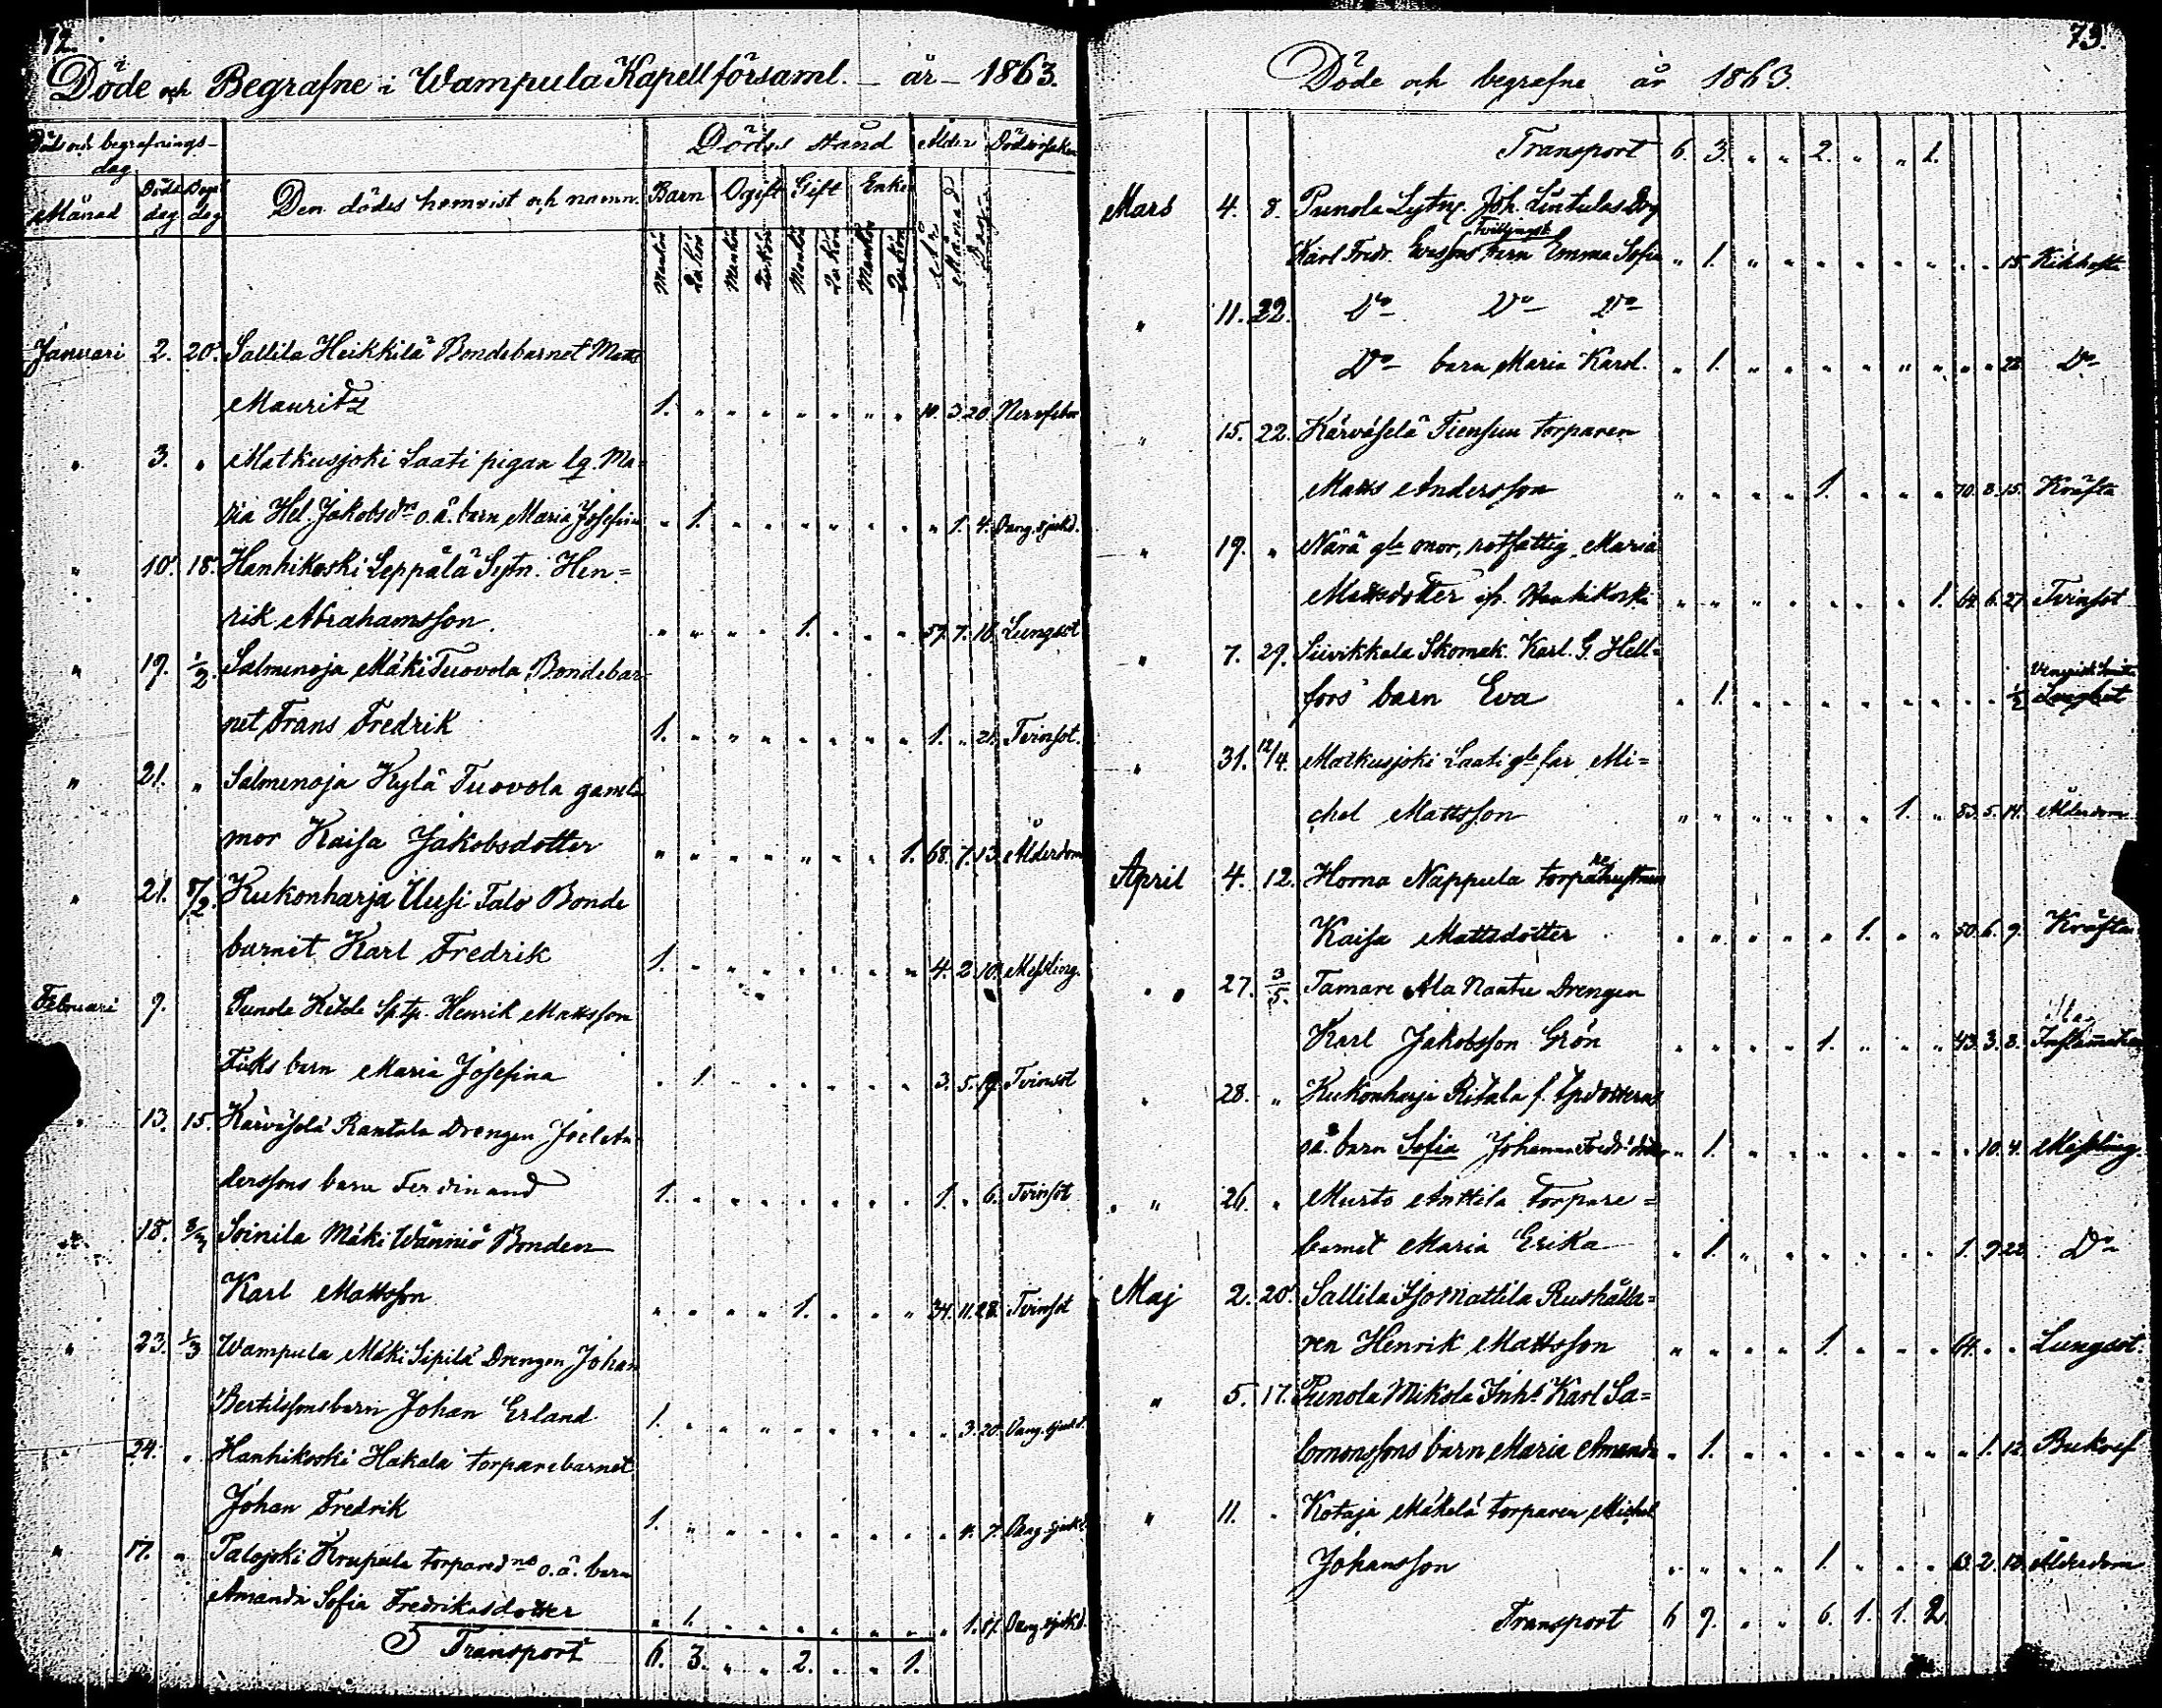 72.
Döde och Begrafne i Wampula Kapellförsaml. – år – 1863.
Döds och begrafnings-
dag
Månad
Döds
dag
Begr
dag
Den dödes hemvist och namn.
Dödes stånd
Barn Ogift Gift Enke
Mankön Qvkön Mankön Qvkön Mankön Qvkön Mankön Qvkön
Ålder
År Månad Dag
Dödsorsaken
Januari 2. 20. Sallila Heikkilä Bondebarnet Matts
Mauritz 1. " " " " " " " 10. 3. 20. Nervfeber
" 3. " Matkusjoki Laati pigan lg. Ma-
ria Hel. Jakobsdr o.ä. barn Maria Josefina " 1. " " " " " " " 1. 4. Vang. sjukd.
" 10. 18. Hanhikoski Leppälä Sytn. Hen=
rik Abrahamsson. " " " " 1. " " " 57. 7. 18. Lungsot
" 19. 1/2. Salmenoja Mäki Tuovola Bondebar-
net Frans Fredrik 1. " " " " " " " 1. " 21. Tvinsot.
" 21. " Salmenoja Kylä Tuovola gamla
mor Kaisa Jakobsdotter " " " " " " " 1. 68. 7. 13. Ålderdom
" 21. 8/2. Kukonharja Uusi Talo Bonde
barnet Karl Fredrik 1. " " " " " " " 4. 2. 10. Messling.
Februari 9. Punola Ketola Sptp. Henrik Mattsson
Fiks barn Maria Josefina " 1. " " " " " " 3. 5. 19. Tvinsot
" 13. 15. Kärväselä Rantala Drengen Joel An-
derssons barn Ferdinand 1. " " " " " " " 1. " 6. Tvinsot
" 18. 8/3 Soinila Mäki Wänniö Bonden
Karl Mattsson " " " " 1. " " " 34. 11. 28. Tvinsot
" 23. 1/3 Wampula Mäki Sipilä Drengen Johan
Bertilssons barn Johan Erland 1. " " " " " " " " 3. 20. Vang. sjukd.
" 24. " Hanhikoski Hakala torparebarnet
Johan Fredrik 1. " " " " " " " " 11. 7. Vang. sjukd.
" 17. " Palojoki Krupula torparedns o.ä. barn
Amanda Sofia Fredriksdotter " 1. " " " " " " " 1. 17. Vang. sjukd.
Transport 6. 3. " " 2. " " 1.
73.
Döde och begrafne år 1863.
Transport 6. 3. " " 2. " " 1.
Mars 4. 8. Punola Lytny. Joh. Lintulas Drg
Tvillingsb.
Karl Fredr. Evessons barn Emma Sofia " 1. " " " " " " " " 15. Kikhosta
" 11. 22. Do Do Do
Do barn Maria Karol. " 1. " " " " " " " " 22. Do
" 15. 22. Kärväselä Tiensuu torparen
Matts Andersson " " " " 1. " " " 70. 8. 15. Kräfta
" 19. " Närä gle mor, rotfattig, Maria
Mattsdotter ifr. Hanhikoski " " " " " " " 1. 64. 6. 27. Tvinsot
" 7. 29. Siivikkala Skomak. Karl. G. Hell-
fors' barn Eva " 1. " " " " " " " " 1/2
" 31. 12/4. Matkusjoki Laati gle far Mi=
chel Mattsson " " " " " " 1. " 83. 5. 14. Ålderdom
April 4. 12. Horna Nappula torparehustrun
Kaisa Mattsdotter " " " " " 1. " " 50. 6. 9. Kräfta
" 27. 3/5. Tamare Ala Naatu Drengen
Karl Jakobsson Grön " " " " 1. " " " 43. 3. 8. Inflammation
" 28. " Kukonharja Ritala f. tpdotterns
oä. barn Sofia Johanna Fredr. dotter " 1. " " " " " " " 10. 4. Messling.
" 26. " Murto Anttila Torpare=
barnet Maria Erika " 1. " " " " " " 1. 9. 22. Do
Maj 2. 20. Sallila Isomattila Rushålla=
ren Henrik Mattsson " " " " 1. " " " 64. " " Lungsot.
" 5. 17. Punola Mikola Inhs Karl Sa=
lomonssons barn Maria Amanda " 1. " " " " " " " 1. 12. Bukref
" 11. " Kotaja Mäkelä torparen Michel
Johansson " " " " 1. " " " 63. 2. 18. Ålderdom
Transport 6 9. " " 6. 1. 1. 2.